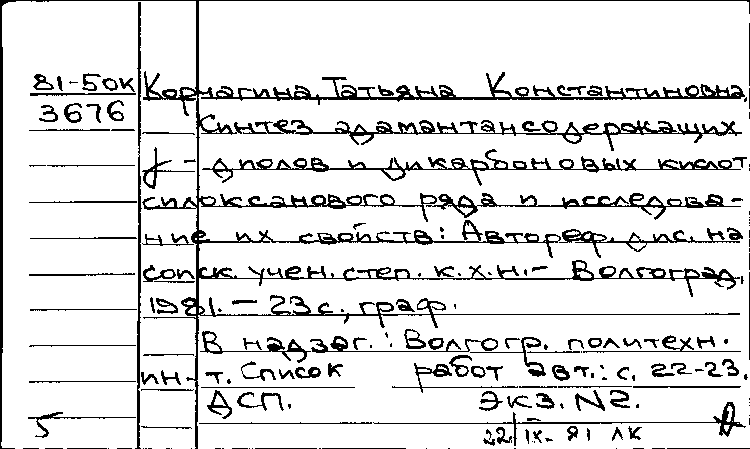 81-50к Корчагина, Татьяна Константиновна
3676
Синтез адамантансодержащих
γ-диолов и дикарбоновых кислот
силоксанового ряда и исследова-
ние их свойств: Автореф. дис. на
соиск. учен. степ. к.х.н.- Волгоград,
1981. - 23 с., граф.
В надзаг.: Волгогр. политехн.
ин-т. Список работ авт.: с. 22-23.
ДСП. Экз. №2.
5 22/IX-81 ЛК